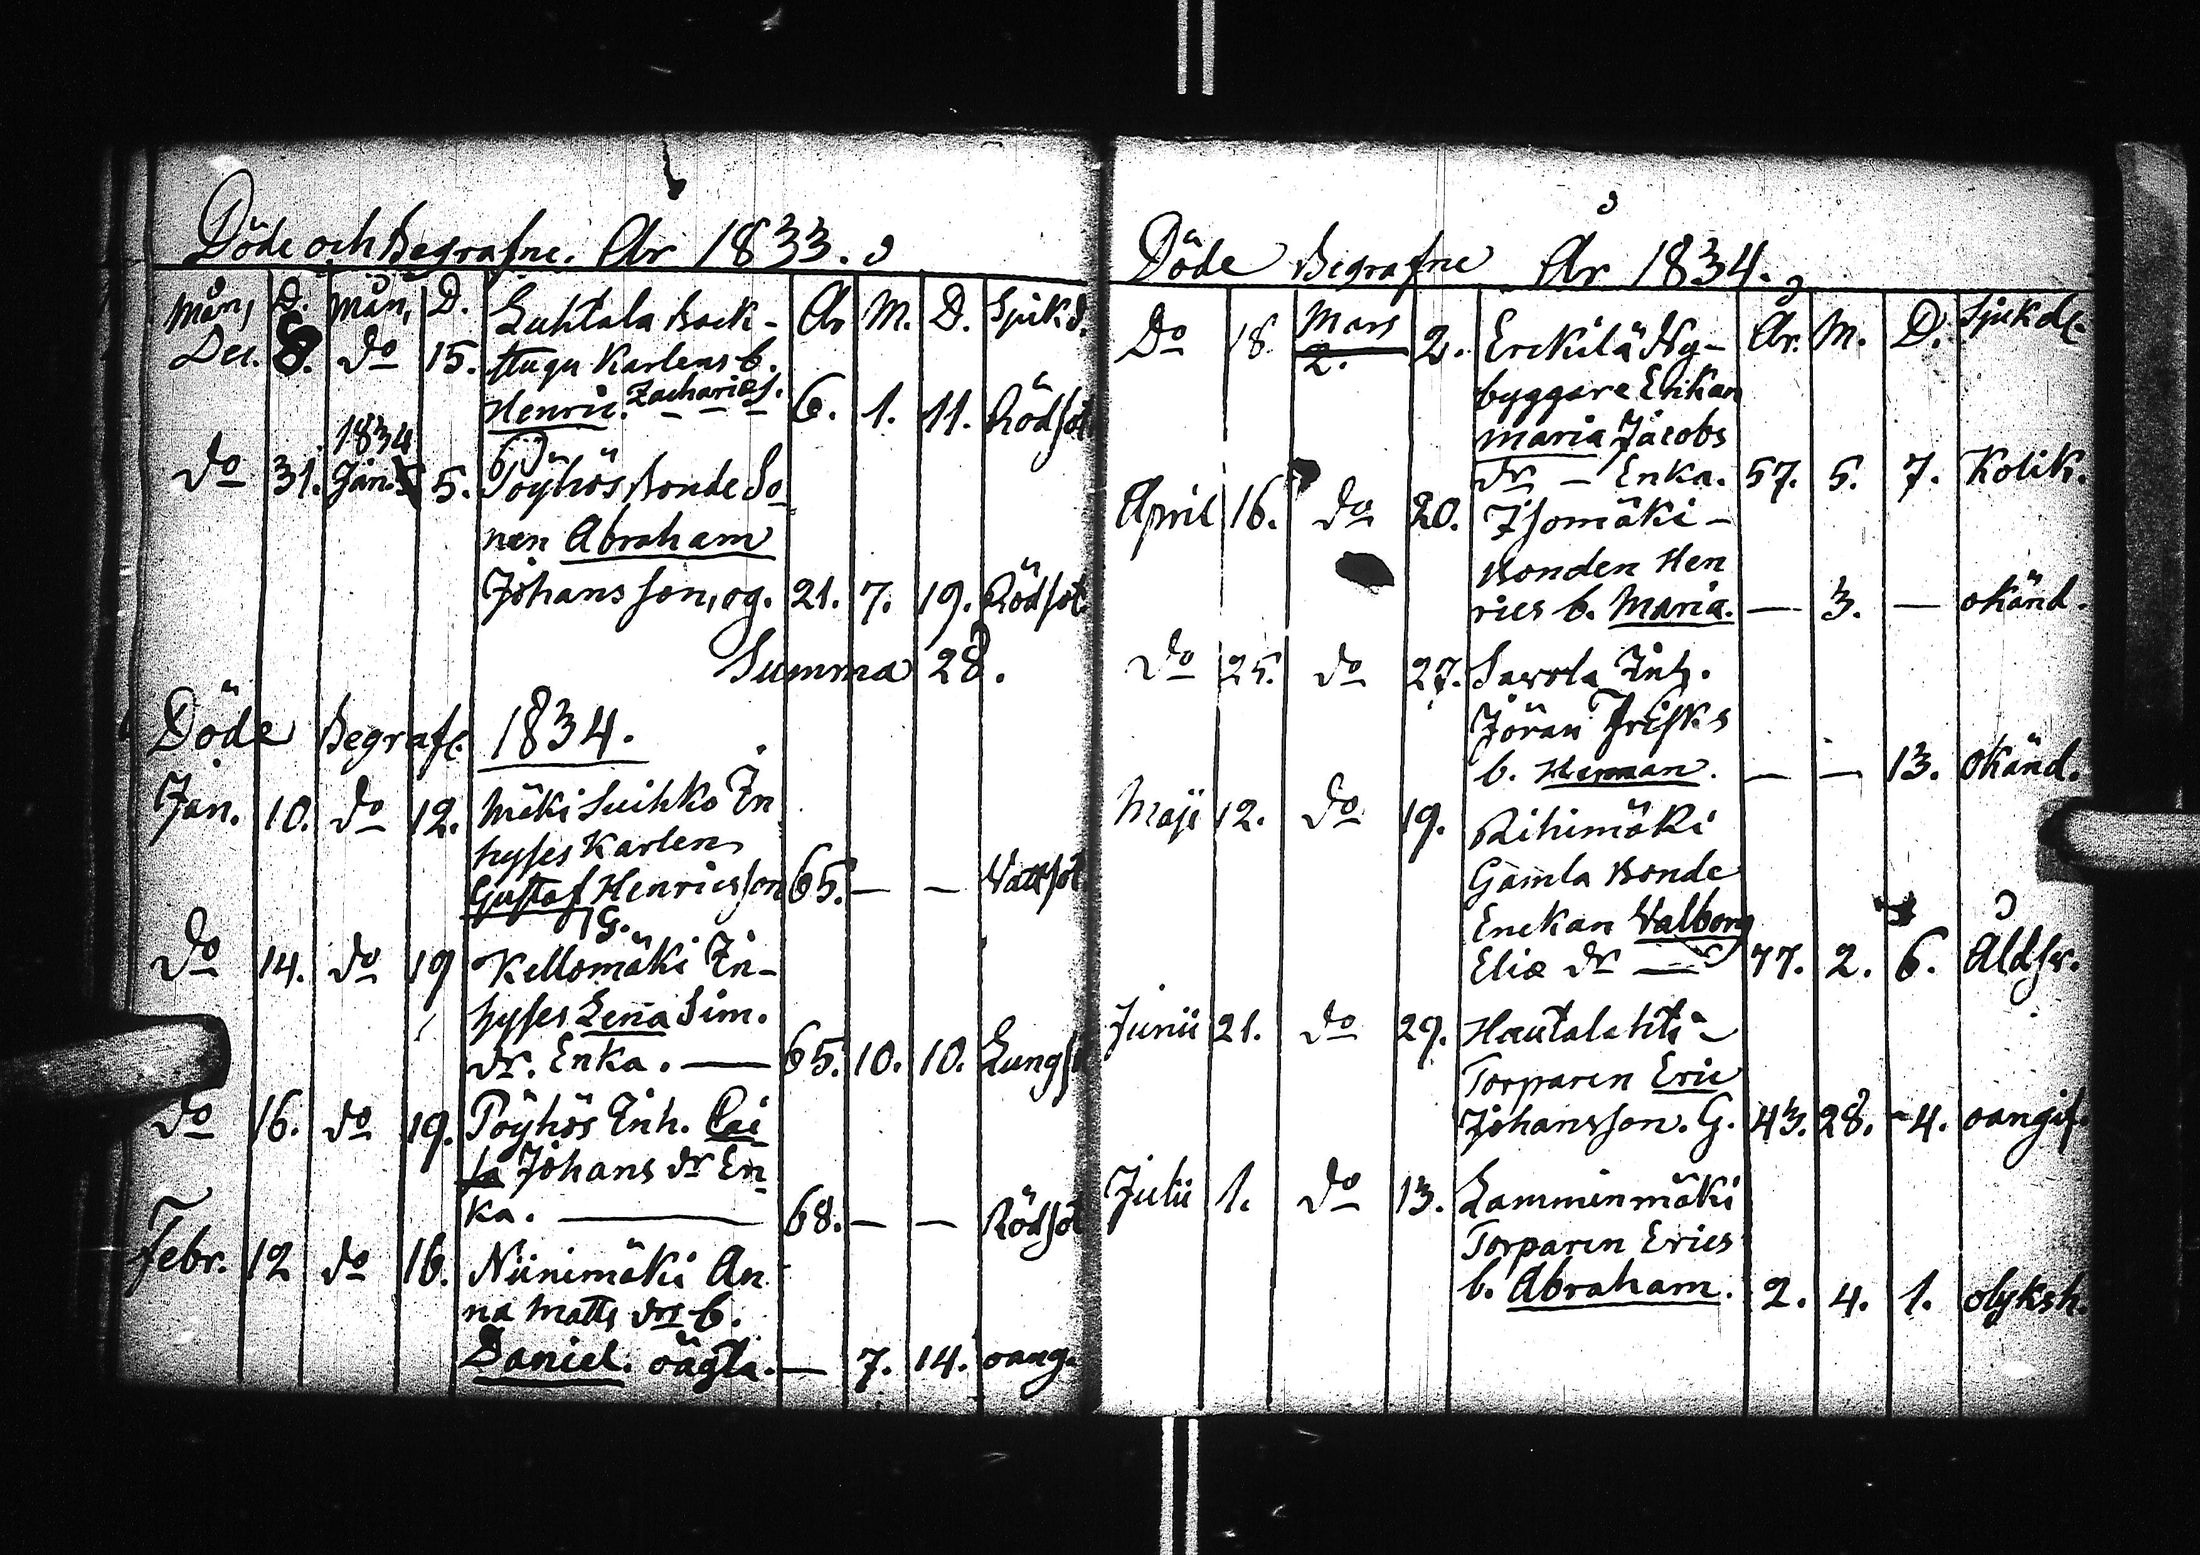 Döde och Begrafne. År 1833.
Mån, D. Mån, D. Luhtala Back- År M. D. Sjukd.
Dec. 8. do 15. stugu Karlens b.
Henric. Zacharies. 6. 1. 11. Rödsot
1834
do 31. Jan. 5. Pöyhös Bonde So
nen Abraham
Johansson, og. 21. 7. 19. Rödsot.
Summa 28.
Döde Begrafe. 1834.
Jan. 10. do 12. Mäki Suihko In
hyses Karlen
Gustaf Henricsson 65. — — Vattsot
G.
do 14. do 19 Kellomäki In-
hyses Lena Sim.
dr. Enka. — 65. 10. 10. Lungs
do 16. do 19. Pöyhös Inh. Cai
sa Johans dr En-
ka. — 68. — — Rödsot
Febr. 12 do 16. Niinimäki An
na Matts drs b.
Daniel. oägta. — 7. 14. oang.
Döde Begrafne År 1834.
Do 18 Mars 2. Erckilä Ny- År. M. D. Sjukde.
2.
byggare Enkan
Maria Jacobs
dr — Enka. 57. 5. 7. Kolik.
April 16. do 20. Isomäki-
Bonden Hen
rics b. Maria. — 3. — okänd.
do 25. do 27. Savola Inh.
Jöran Frisks
b. Herman. — — 13. okänd.
Maji 12. do 19. Rihimäki
Gamla Bonde
Enckan Valborg
Eliæ dr — 77. 2. 6. Åldsv.
Junii 21. do 29. Hautalahti-
Torparen Eric
Johansson. G. 43. 28. -4. oangif.
Julii 1. do 13. Lamminmäki
Torparen Erics
b. Abraham. 2. 4. 1. olyksh.